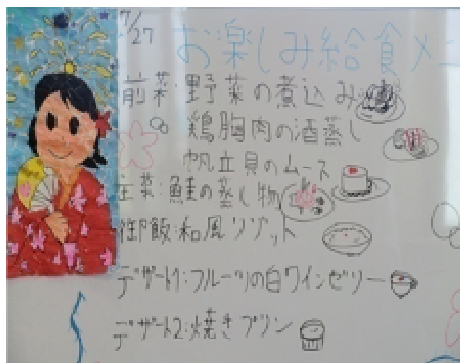 7/27
お楽しみ給食メニ
前菜:野菜の煮込み
鶏胸肉の酒蒸し
帆立貝のムース
主菜:鮭の蒸し物
御飯:和風リゾット
デザート1:フルーツの白ワインゼリー
デザート2:焼きプリン